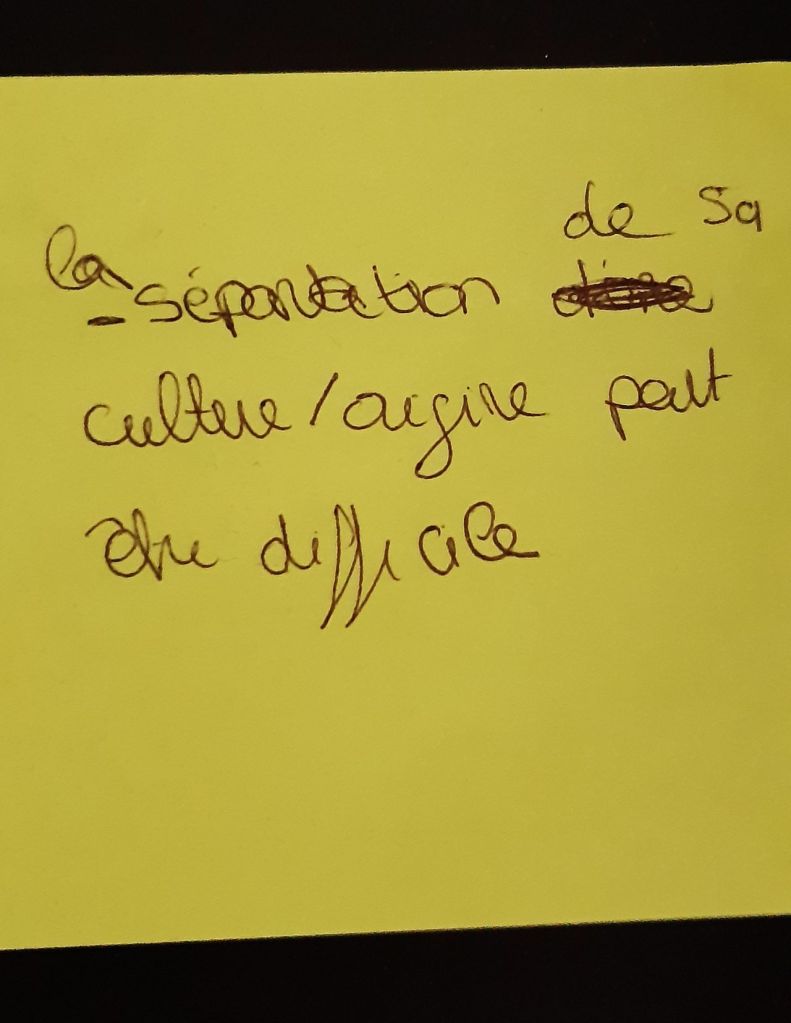 la de sa
- séparation
culture/origine peut
être difficile